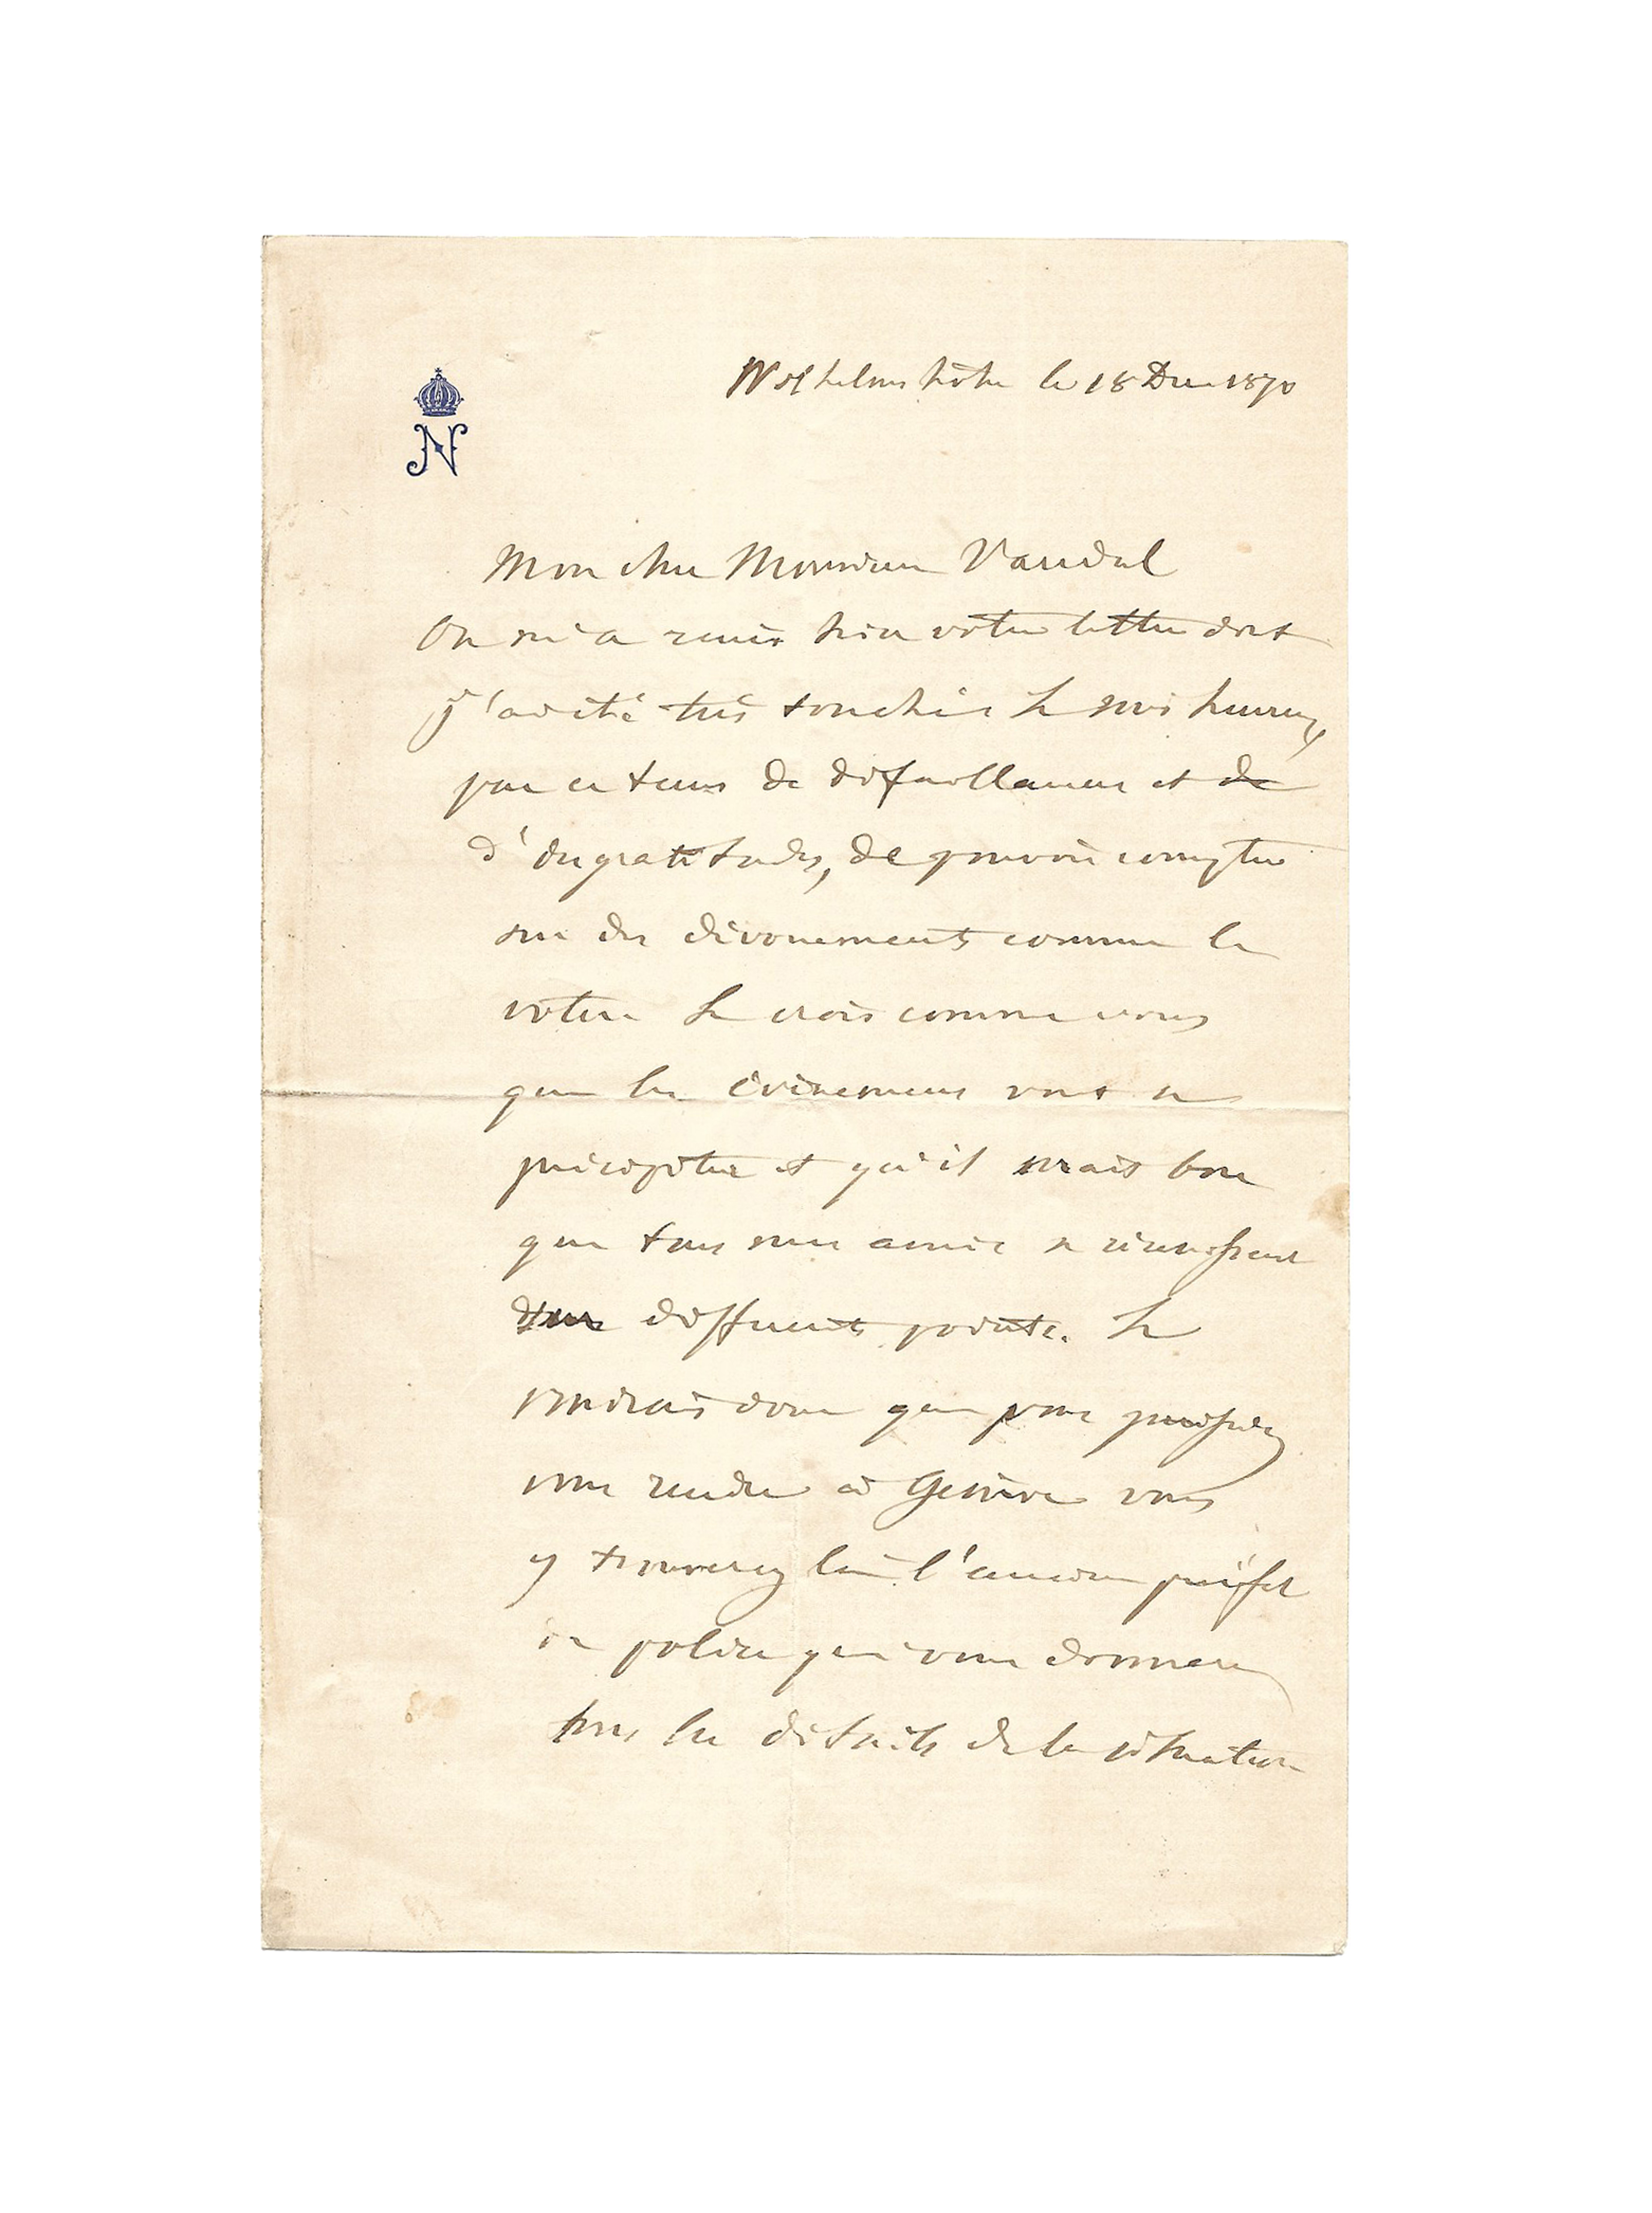 N
Wilhelmshöhe le 18 Dec 1870
Mon cher Monsieur Vandal
On m'a remis hier votre lettre dont
j'ai été très touché. Je suis heureux,
par ce tems de défaillances et de
d'ingratitudes, de pouvoir compter
sur des dévouements comme le
vôtre. Je crois comme vous
que les évènemens vont se
précipiter et qu'il serait bon
que tous mes amis se réunissent
différents points. Je
voudrais donc que vous puissiez
vous rendre à Genève vous
y trouverez là l'ancien préfet
de police qui vous donnera
tous les détails de la situation